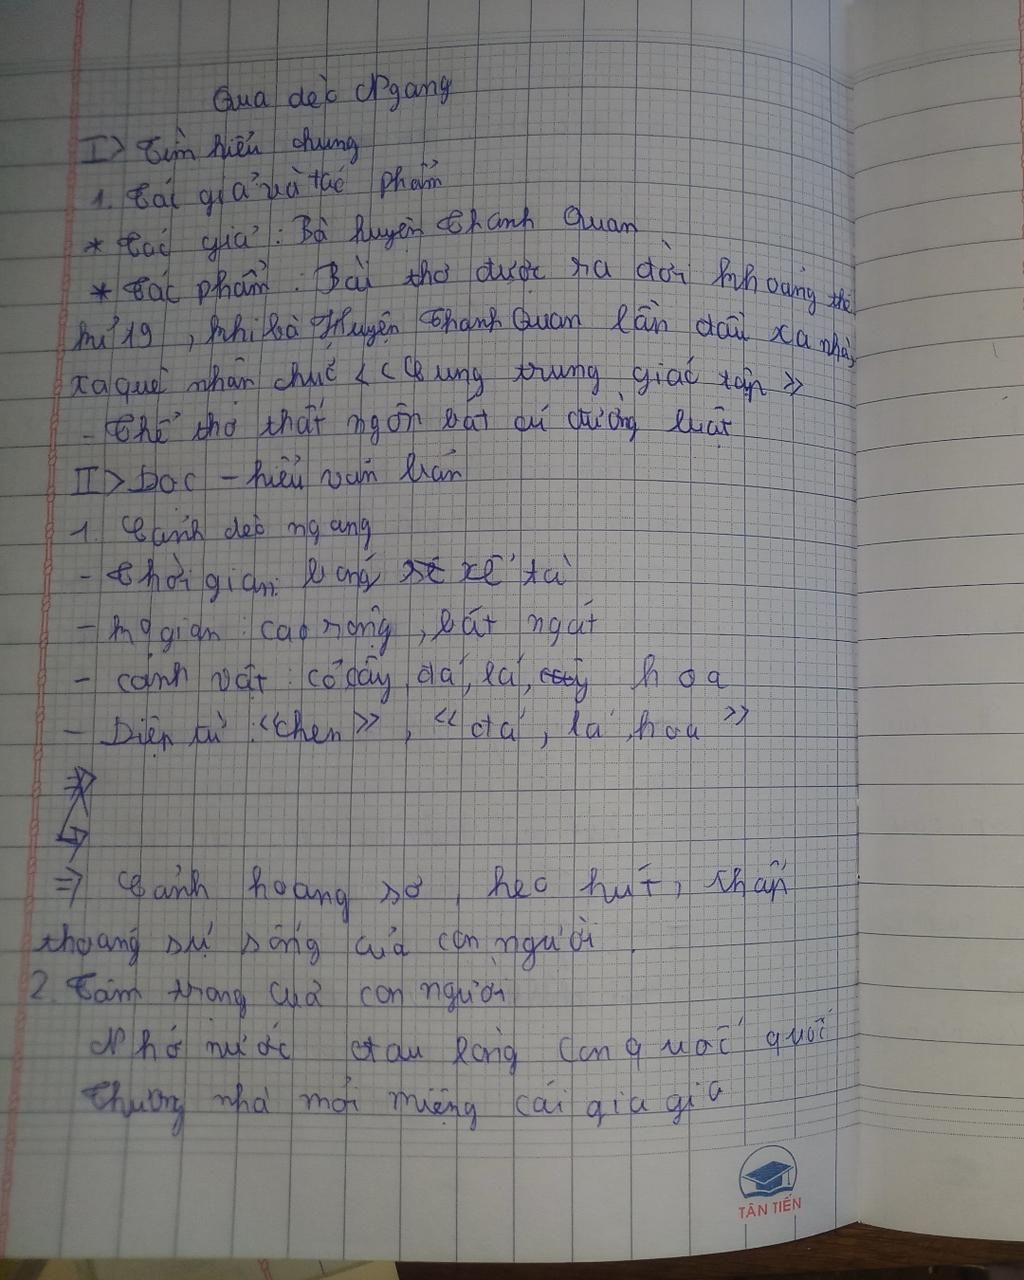 Qua đèo Ngang
I> Tìm hiểu chung
1. Tác giả và tác phẩm
* Tác giả: Bà Huyện Thanh Quan
* Tác phẩm: Bài thơ được ra đời khoảng thế
kỉ 19, khi bà Huyện Thanh Quan lần đầu xa nhà,
xa quê nhận chức <<Cung trung giáo tập>>
- Thể thơ thất ngôn bát cú đường luật
II> Đọc - hiểu văn bản
1. Cảnh đèo ngang
- Thời gian: bóng xế tà
- kg gian: cao rộng, bát ngát
- cảnh vật: cỏ cây, đá, lá, hoa
- Điệp từ: <<chen>>, <<đá, lá, hoa>>
=> Cảnh hoang sơ, heo hút, thấp
thoáng sự sống của con người.
2. Tâm trạng của con người
Nhớ nước đau lòng con quốc quốc
Thương nhà mỏi miệng cái gia gia
TÂN TIẾN